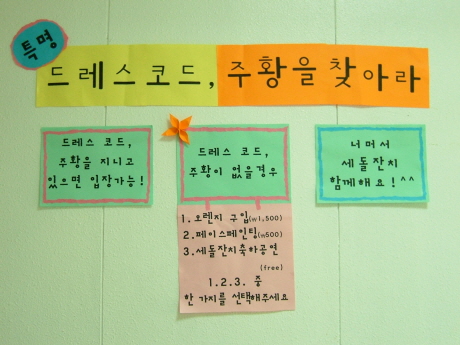 특명
드레스코드, 주황을 찾아라
드레스 코드,
주황을 지니고
있으면 입장가능!
드레스 코드,
주황이 없을경우
1. 오렌지 구입(w1,500)
2. 페이스페인팅(w500)
3. 세돌잔치축하공연
(free)
1. 2. 3. 중
한 가지를 선택해주세요
너머서
세돌잔치
함께해요! ^^